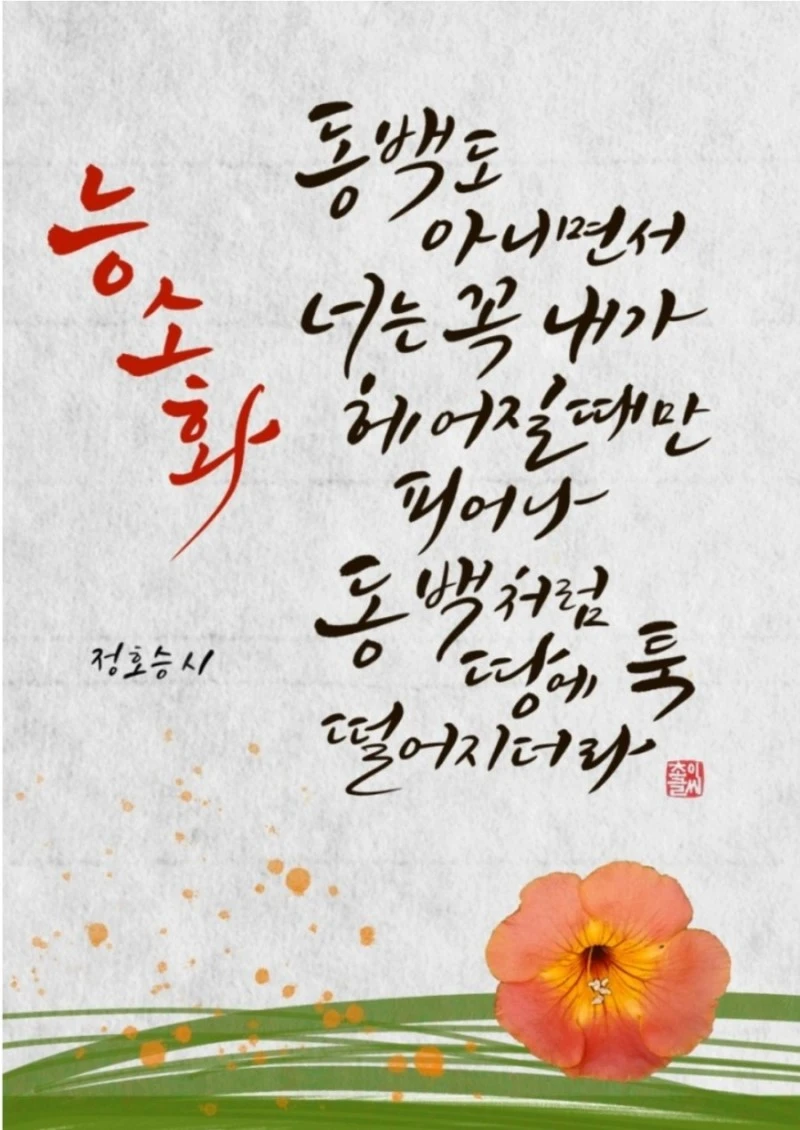 능소화
동백도
아니면서
너는 꼭 내가
헤어질때만
피어나
동백처럼
땅에 툭
떨어지더라
정호승 시